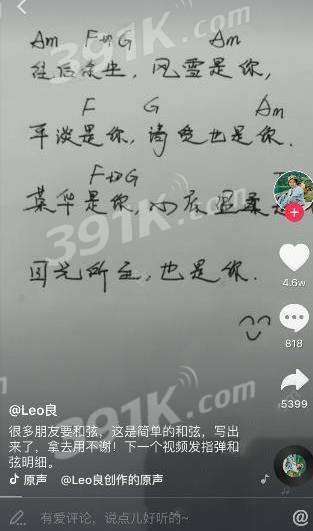 Am F→G Am
往后余生，风雪是你，
F G Am
平淡是你，清贫也是你.
F→G
荣华是你，心底温柔
目光所至，也是你.
4.6w
818
5399
@Leo良
很多朋友要和弦，这是简单的和弦，写出
来了，拿去用不谢！下一个视频发指弹和
弦明细。
原声 @Leo良创作的原声
有爱评论，说点儿好听的~
@
391K.com
391K.com
391K.com